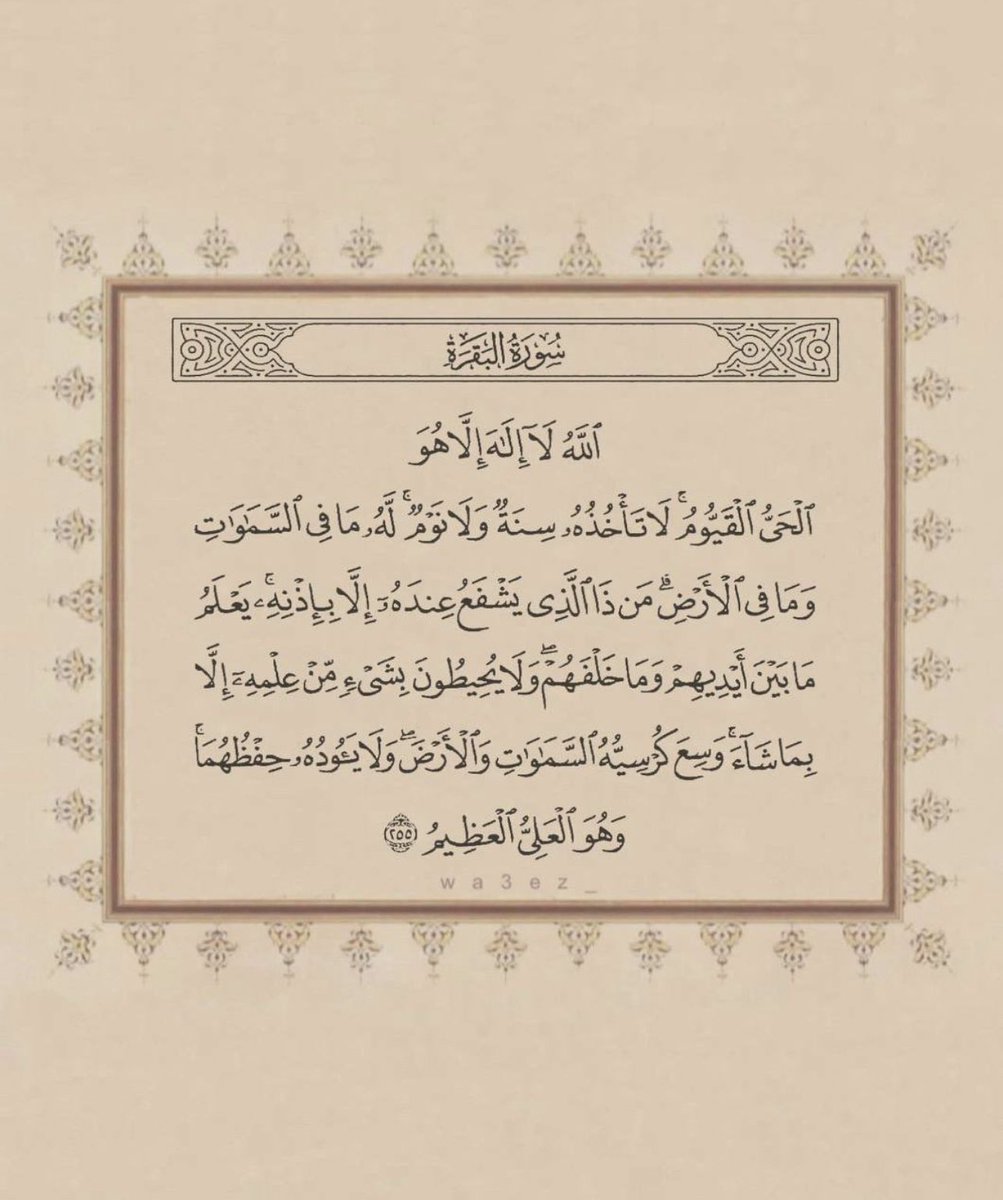 سُورَةُ البَقَرَةِ
ٱللَّهُ لَآ إِلَٰهَ إِلَّا هُوَ
ٱلْحَىُّ ٱلْقَيُّومُ ۚ لَا تَأْخُذُهُۥ سِنَةٌ وَلَا نَوْمٌ ۚ لَّهُۥ مَا فِى ٱلسَّمَٰوَٰتِ
وَمَا فِى ٱلْأَرْضِ ۗ مَن ذَا ٱلَّذِى يَشْفَعُ عِندَهُۥٓ إِلَّا بِإِذْنِهِۦ ۚ يَعْلَمُ
مَا بَيْنَ أَيْدِيهِمْ وَمَا خَلْفَهُمْ ۖ وَلَا يُحِيطُونَ بِشَىْءٍ مِّنْ عِلْمِهِۦٓ إِلَّا
بِمَا شَآءَ ۚ وَسِعَ كُرْسِيُّهُ ٱلسَّمَٰوَٰتِ وَٱلْأَرْضَ ۖ وَلَا يَـُٔودُهُۥ حِفْظُهُمَا ۚ
وَهُوَ ٱلْعَلِىُّ ٱلْعَظِيمُ ٢٥٥
wa3ez_